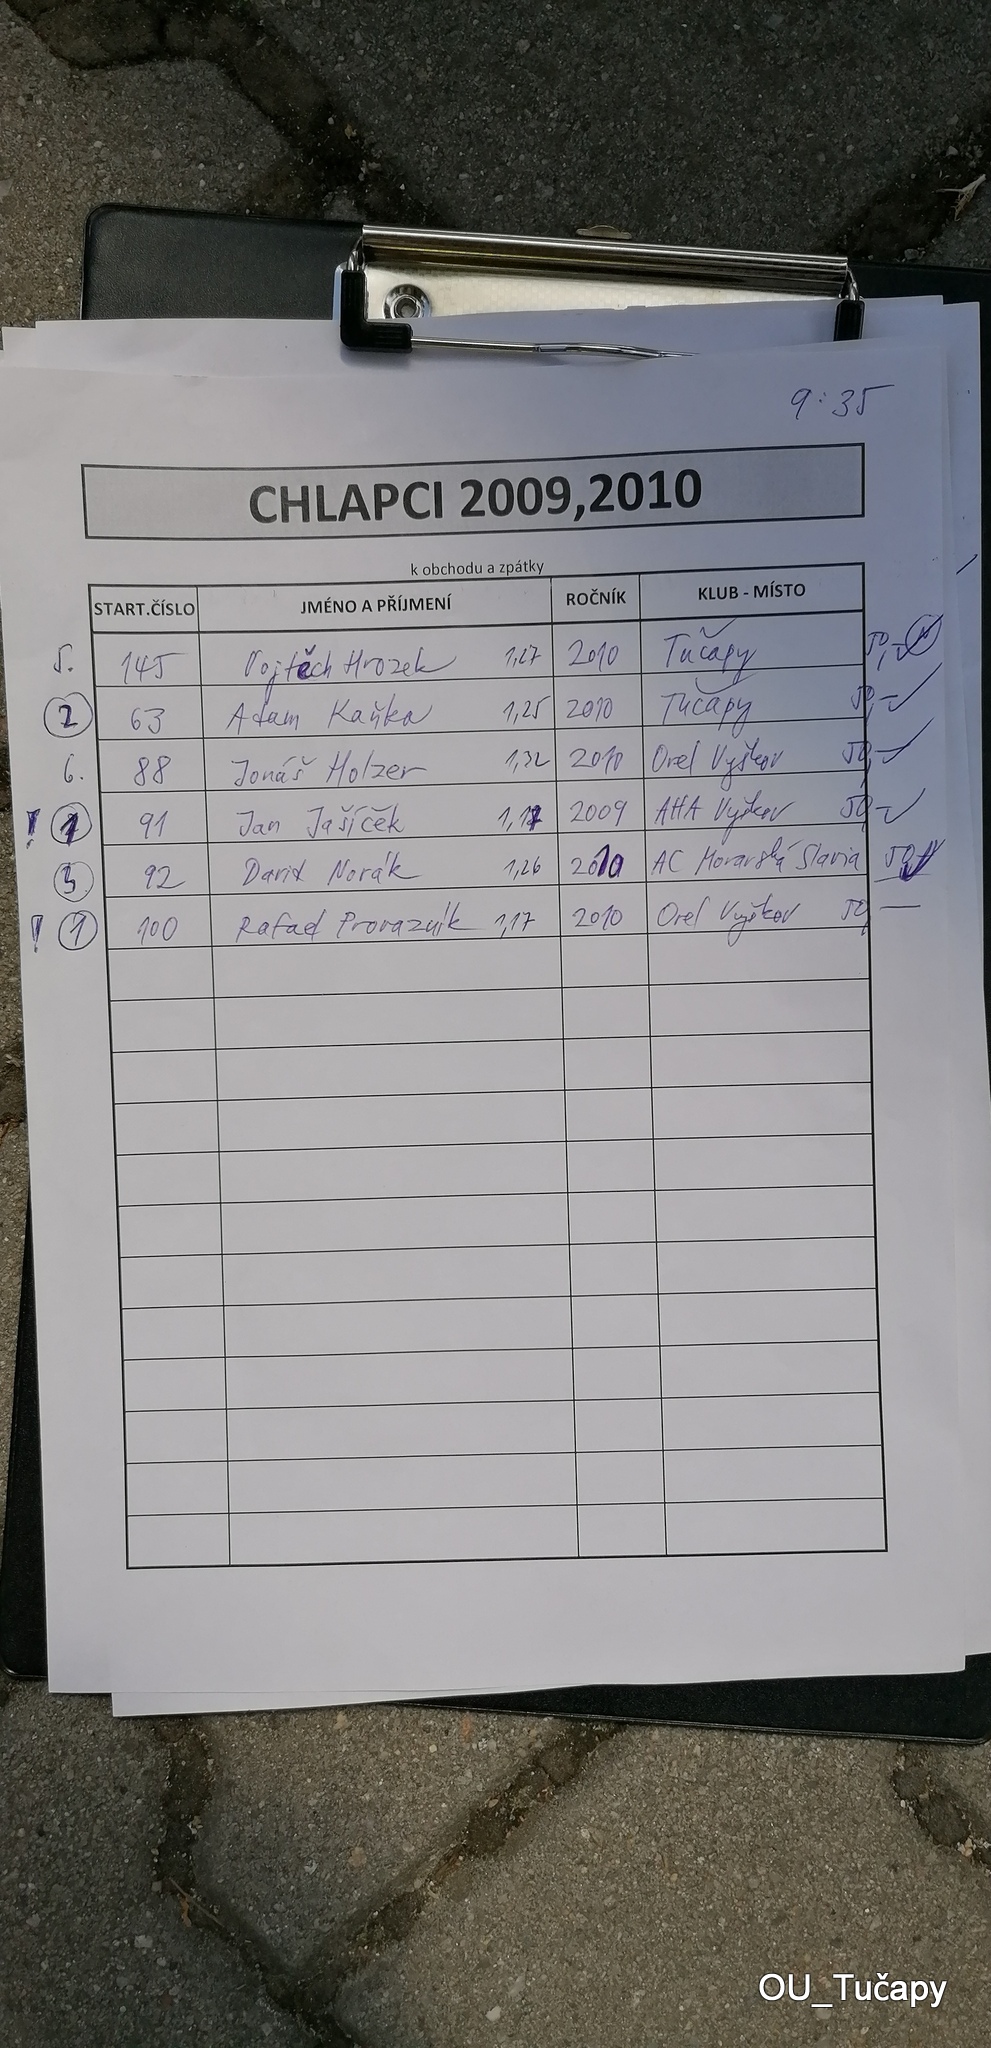 9:35
CHLAPCI 2009,2010
k obchodu a zpátky
START.ČÍSLO JMÉNO A PŘÍJMENÍ ROČNÍK KLUB - MÍSTO
5. 145 Vojtěch Hrozek 1,27 2010 Tučapy 50,-
2 63 Adam Kaňka 1,25 2010 Tučapy 50,-
6. 88 Jonáš Holzer 1,32 2010 Orel Vyškov 50,-
! 1 91 Jan Jašíček 1,17 2009 AHA Vyškov 50,-
3. 92 David Novák 1,26 2010 AC Moravská Slavia 50,-
! 1 100 Rafael Provazník 1,17 2010 Orel Vyškov 50,-
OU_Tučapy